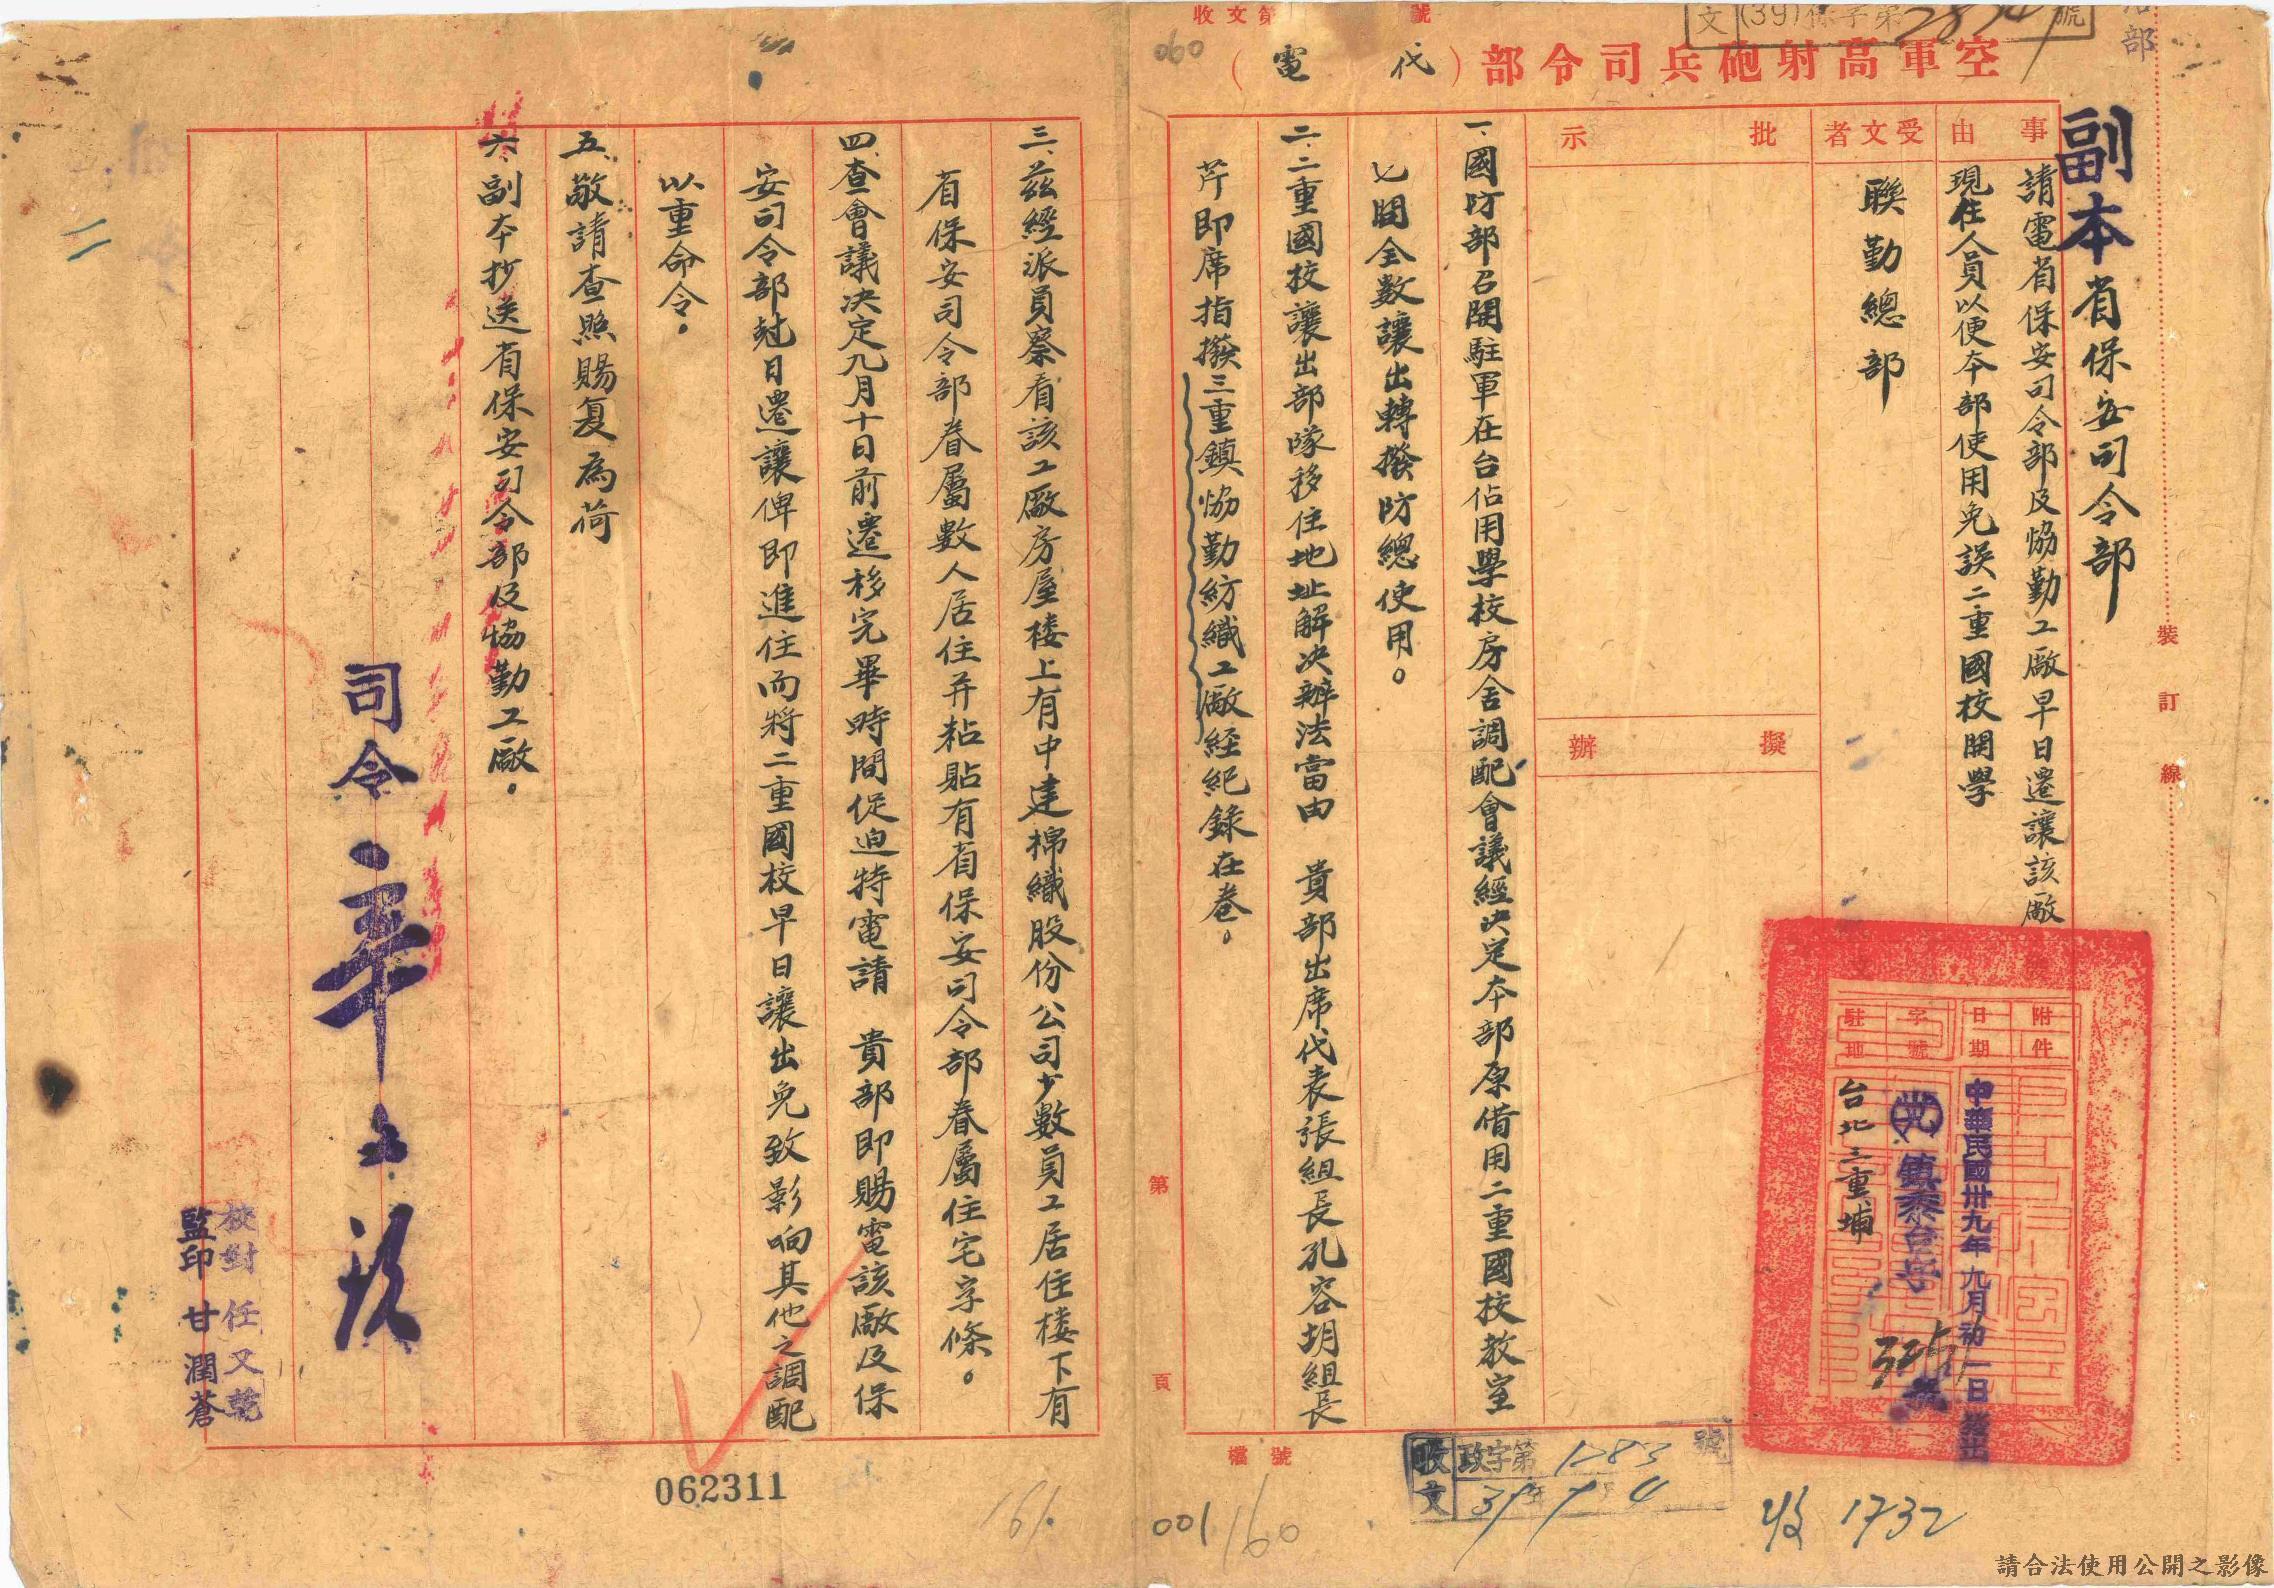 收文第 號
文 (39)保字第2874號
空軍高射砲兵司令部(代電)
060
副本 省保安司令部
事由
請電省保安司令部及協勤工廠早日遷讓該廠
現住人員以便本部使用免誤二重國校開學
受文者
聯勤總部
批示
擬辦
附件
日期
中華民國卅九年九月初一日發出
字號
鎮泰台字
號
駐地
台北三重埔
一、國防部召開駐軍在台佔用學校房舍調配會議經決定本部原借用二重國校教室
七間全數讓出轉撥防總使用。
二、二重國校讓出部隊移住地址解決辦法當由 貴部出席代表張組長孔容胡組長
芹即席指撥三重鎮協勤紡織工廠經紀錄在卷。
三、茲經派員察看該工廠房屋楼上有中建棉織股份公司少數員工居住楼下有
省保安司令部眷屬數人居住并粘貼有省保安司令部眷屬住宅字條。
四、查會議決定九月十日前遷移完畢時間促迫特電請 貴部即賜電該廠及保
安司令部尅日遷讓俾即進住而將二重國校早日讓出免致影响其他之調配
以重命令。
五、敬請查照賜复為荷
六、副本抄送省保安司令部及協勤工廠。
司令 辛
校對 任又乾
監印 甘潤蒼
裝訂線
第 頁
檔號
001/160
161.
062311
收文 政字第1283號
39 9 4
收 1732
二
請合法使用公開之影像